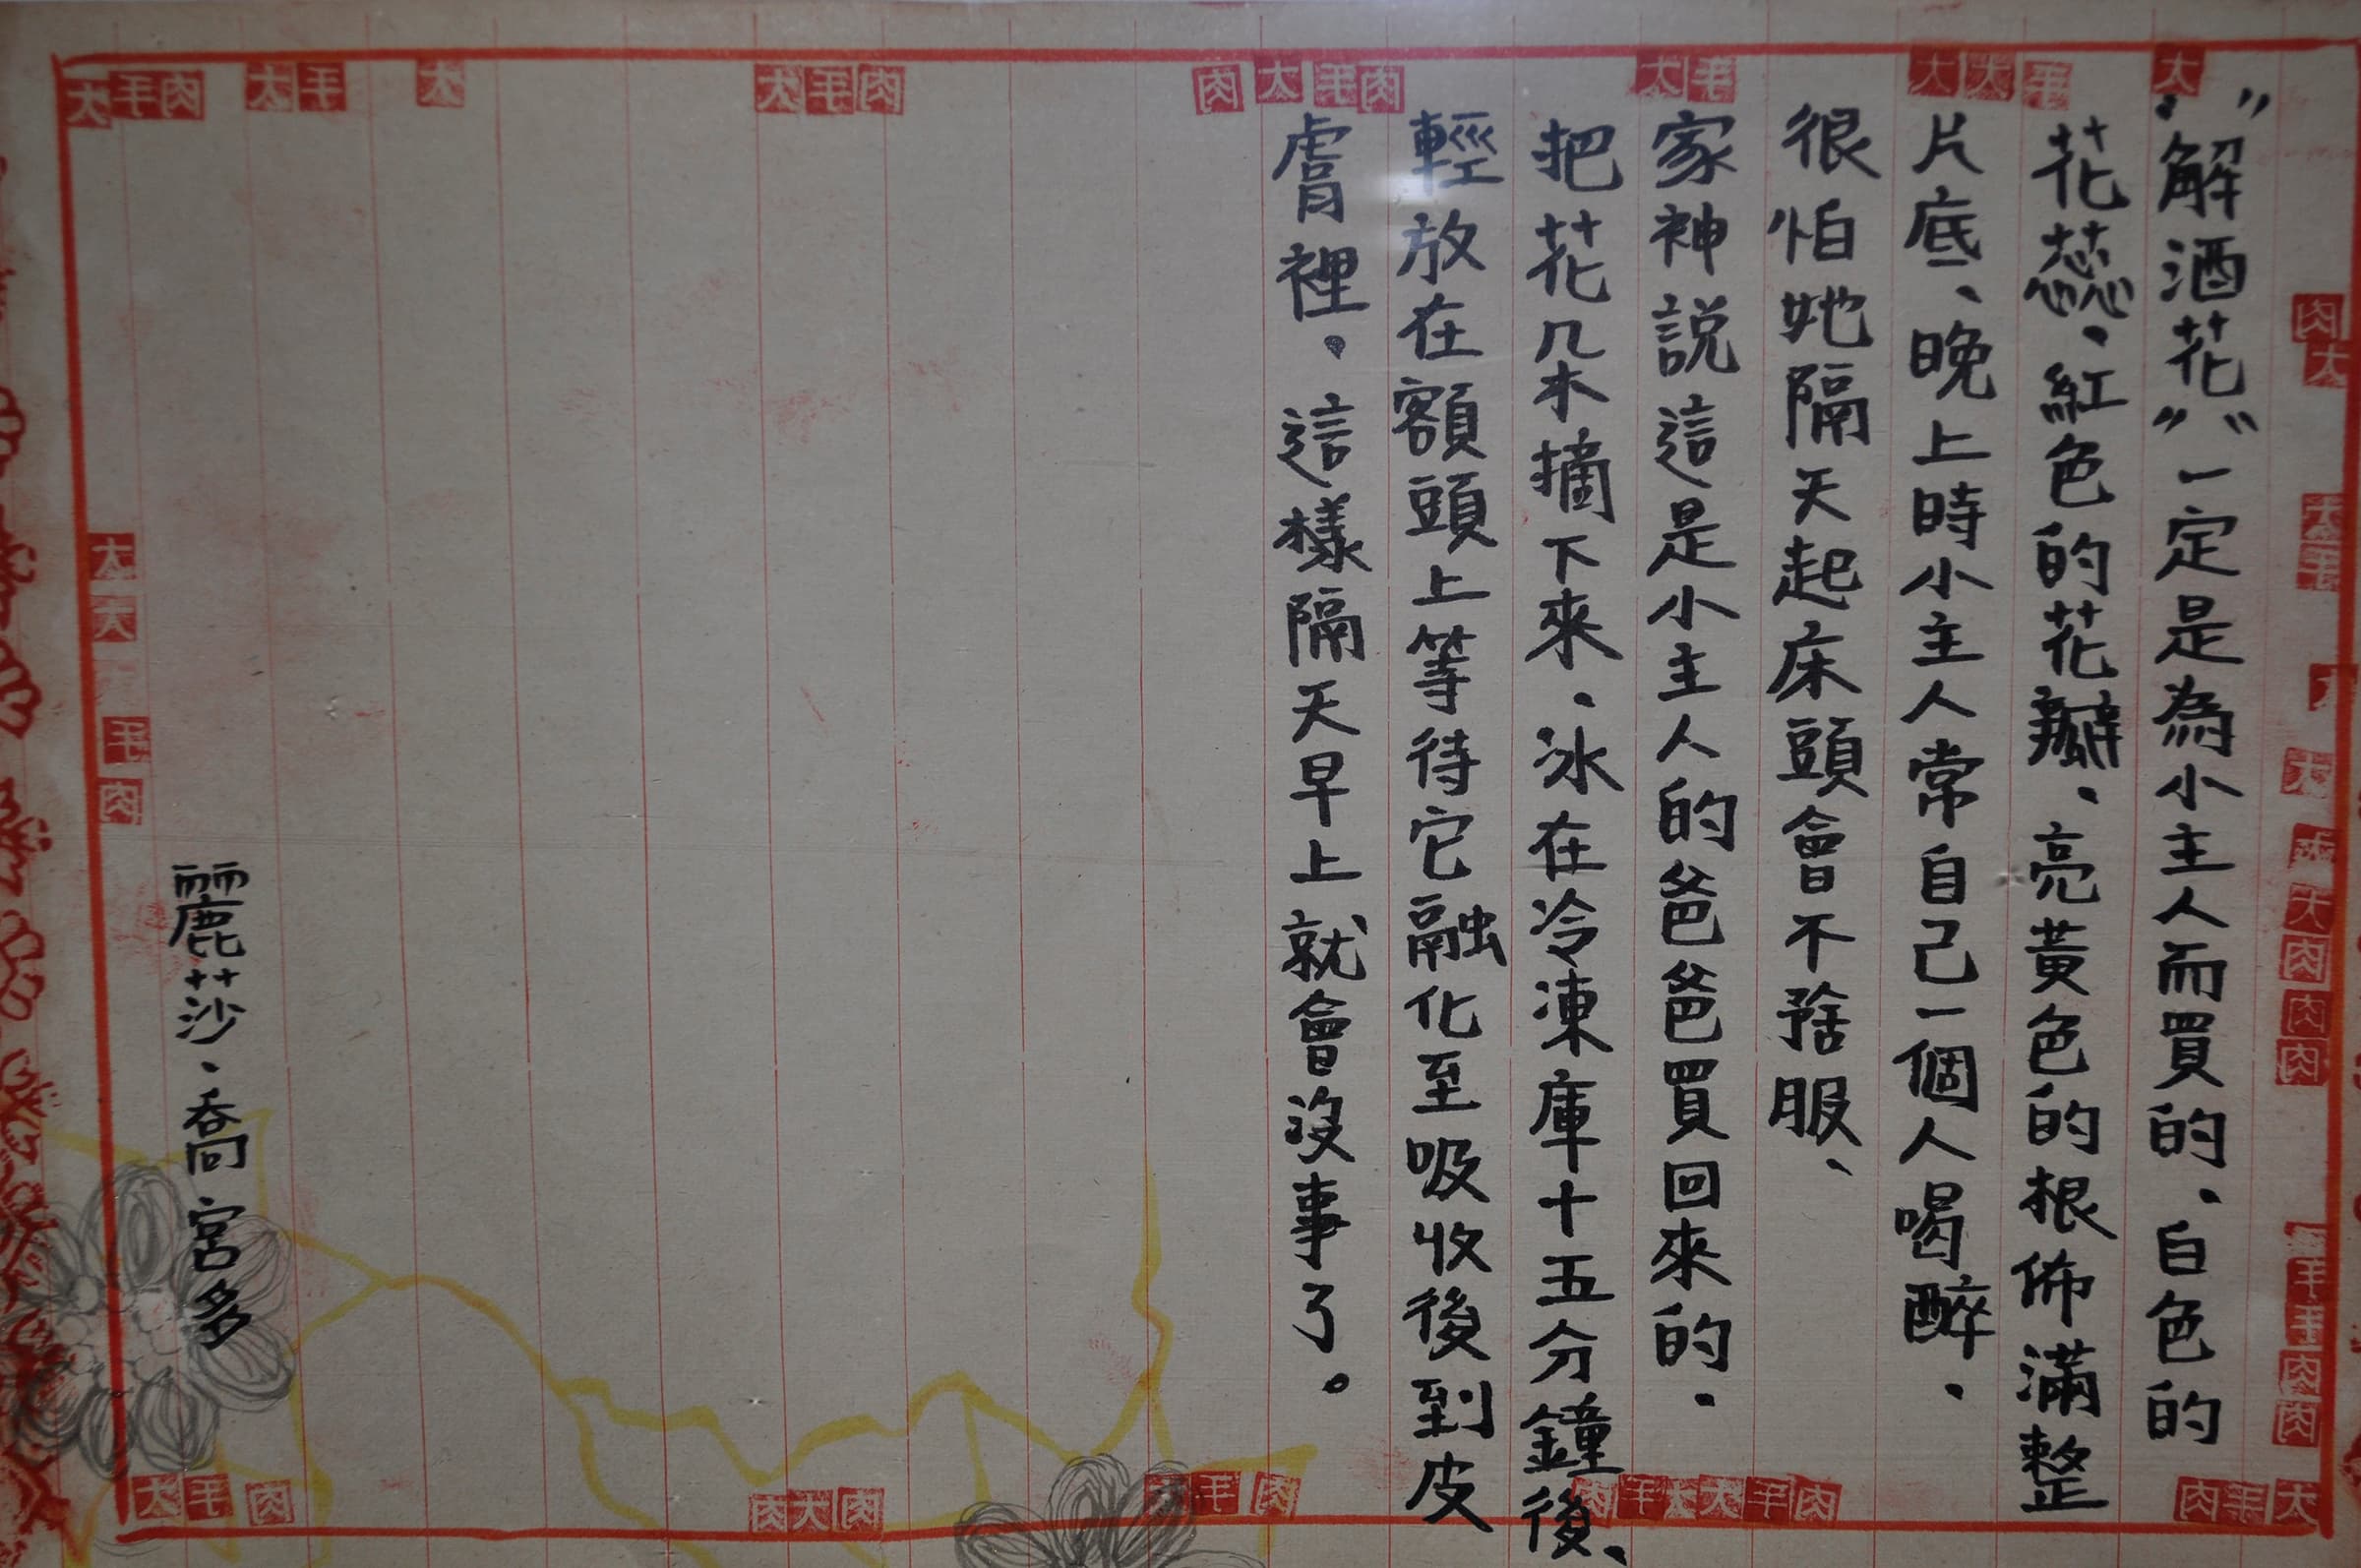 "解酒花"一定是為小主人而買的、白色的
花蕊、紅色的花瓣、亮黃色的根佈滿整
片底、晚上時小主人常自己一個人喝醉、
很怕她隔天起床頭會不舒服、
家神說這是小主人的爸爸買回來的、
把花朵摘下來、冰在冷凍庫十五分鐘後、
輕放在額頭上等待它融化至吸收後到皮
膚裡、這樣隔天早上就會沒事了。
麗莎、喬宮多